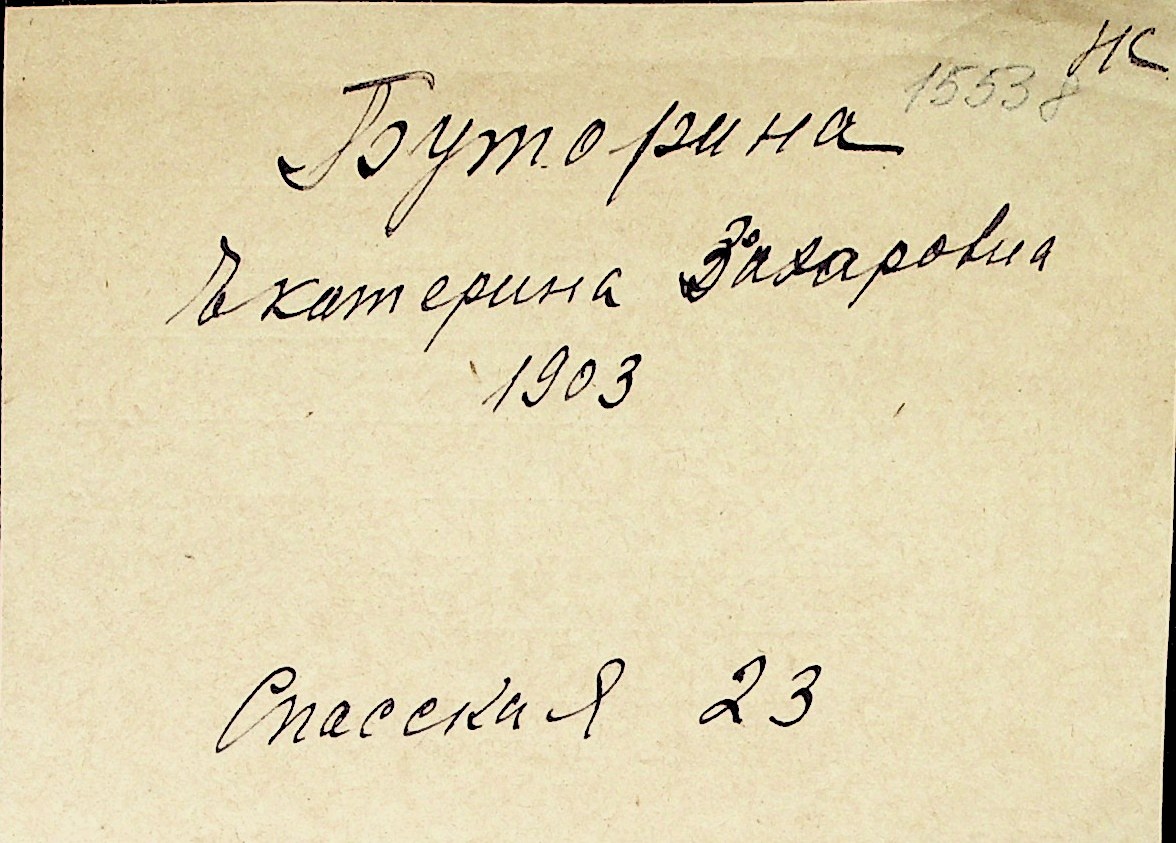 НС
15538
Буторина
Екатерина Захаровна
1903
Спасская 23